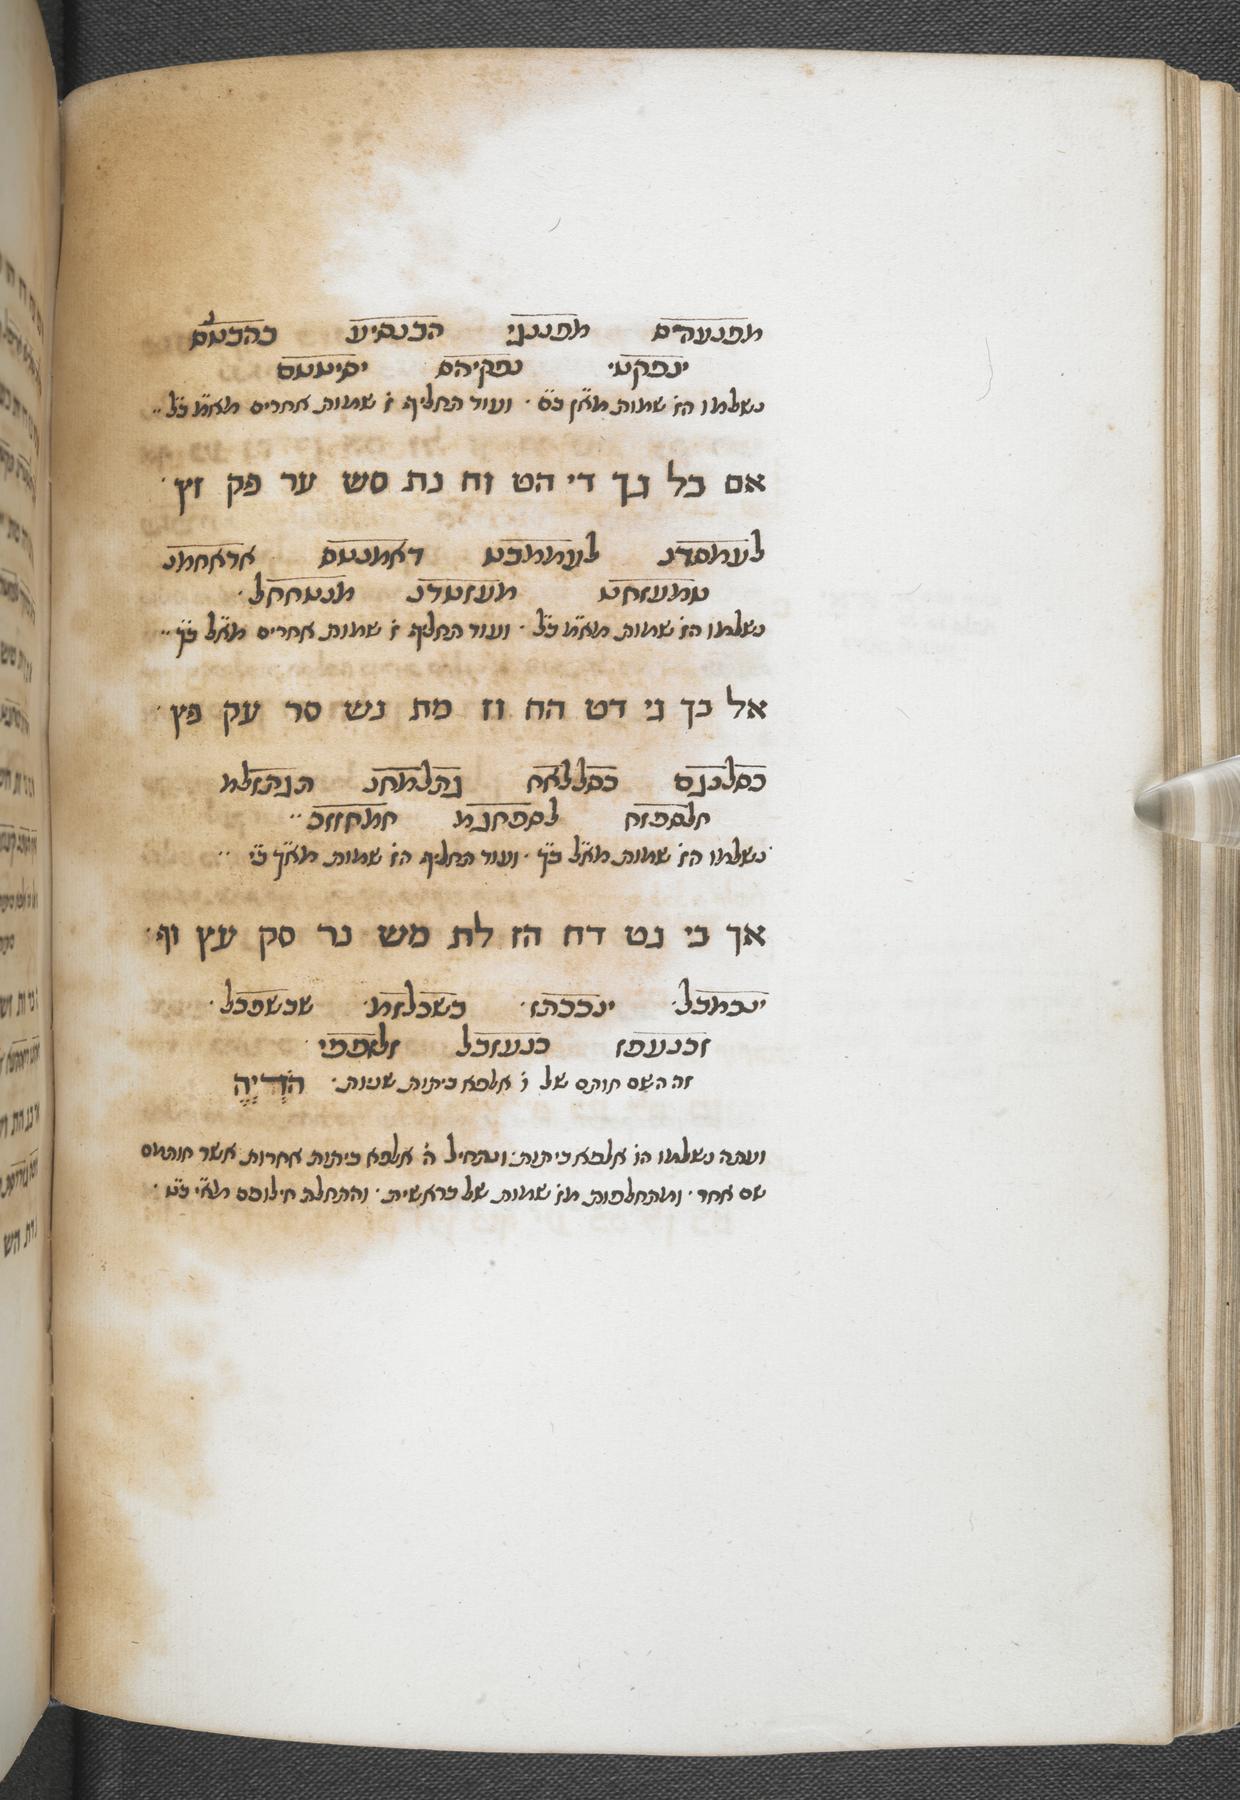 מפנעהים מפננני הכנסיע כהכטעם
ינפקט· נפקיהם יסיטעם
נשלמו הז׳ שמות מא״ן כ״ם · ועוד תחליף ז׳ שמות אחרים מא״מ כ״ל··
אם כל גך די הט וח נת סש ער פק זץ·
לעמסדנ לעממכט דאמנטם אראחמנ
טמעזחט מעזטדנ מנטחחל·
נשלמו הז׳ שמות מא״מ כ״ל · ועוד תחליף ז׳ שמות אחרים מא״ל כ״ך··
אל כך גי דט הח וז מת נש סר עק פץ·
כסלכנם כסללאח נתלמחנ תנתזלמ
חלספזח לספחנמ חמחזזכ··
נשלמו הז׳ שמות מא״ל כ״ך · ועוד תחליף הז׳ שמות מא״ך כ״י··
אך בי גט דח הז לת מש נר סק עץ וף·
ינכמכל· ינככתז· כשכלזמ· שכשפכל·
זכנעפז כנעזכל זלאפמי·
זה השם חותם של ז׳ אלפא ביתות שניות· הדיה
ועתה נשלמו הז׳ אלפא ביתות· ונתחיל ה׳ אלפא ביתות אחרות אשר חותמם
שם אחד · ומתחלפות מז׳ שמות של בראשית · והתחלת חילופם מא״י כ״ט·